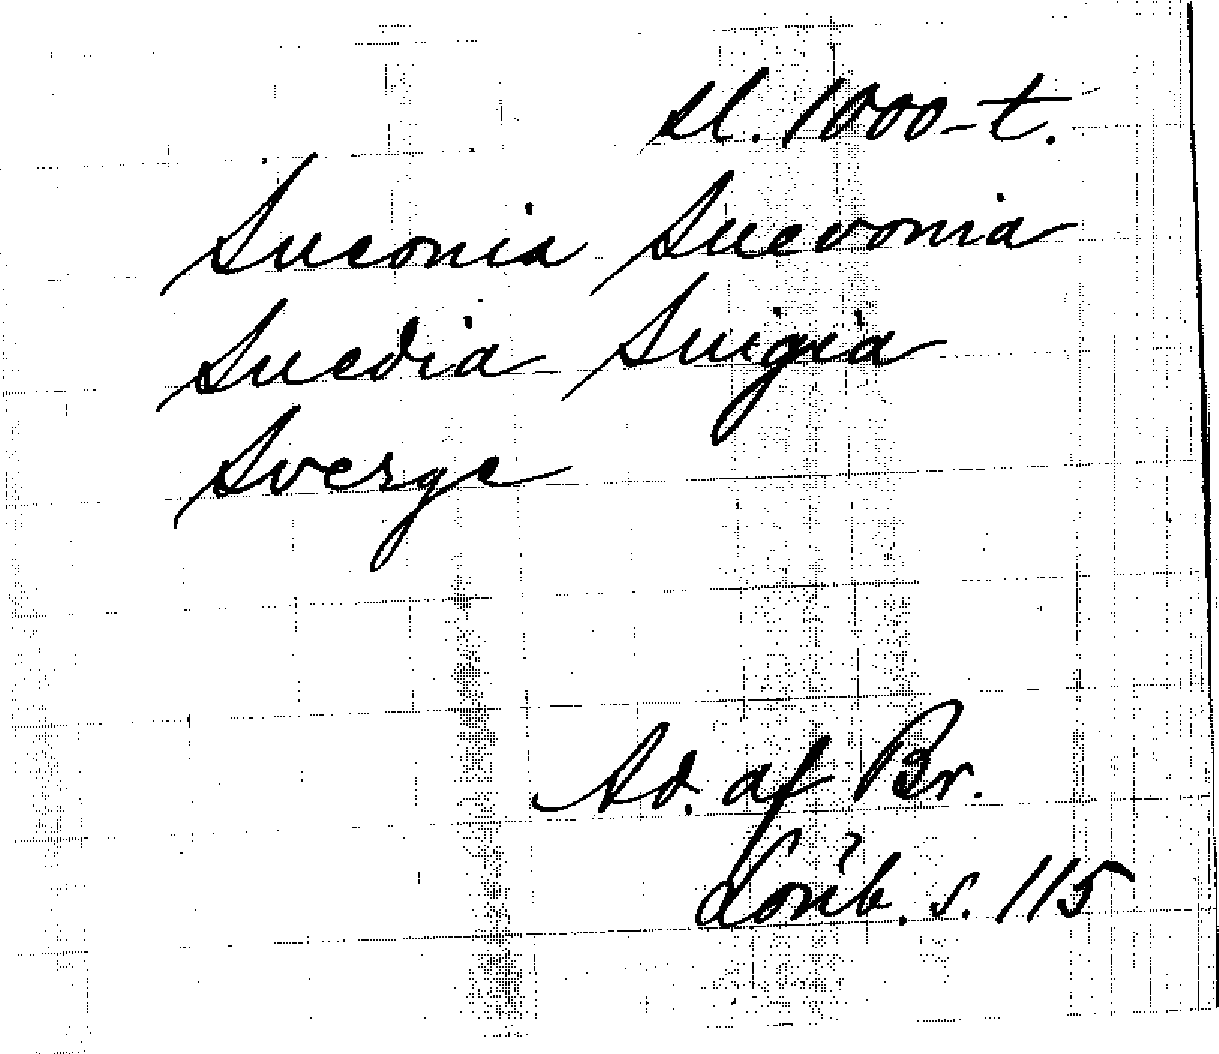 sl. 1000-t.
Sueonia Suevonia
Suedia Suigia
Sverge
Ad. af Br.
s. 115